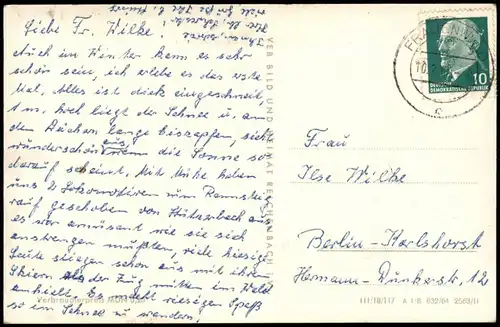 Liebe Fr. Wilke.
Auch im Winter kann es sehr
schön sein, ich erlebe es das erste
Mal. Alles ist dick eingeschneit,
1 m. hoch liegt der Schnee u. an
den Dächern lange Eiszapfen, sieht
wunderschön aus wenn die Sonne so
darauf scheint. Mit Mühe haben
uns 2 Lokomotiven zum Rennsteig
rauf geschoben von Stützerbach aus
es war amüsant wie sie sich
anstrengen mußten, viele hiesige
Leute stiegen schon aus mit ihren
Skiern als der Zug mitten im Wald
anhielt. Es macht riesigen Spaß
so im Schnee zu wandern.
VEB BILD UND HEIMAT REICHENBACH
Verbraucherpreis MDN
FRAUENWALD
10
DEUTSCHE
DEMOKRATISCHE REPUBLIK
Frau
Ilse Wilke
Berlin-Karlshorst
Hermann-Dunkerstr, 12
III/18/117 A 1-B 632/64 2563/11